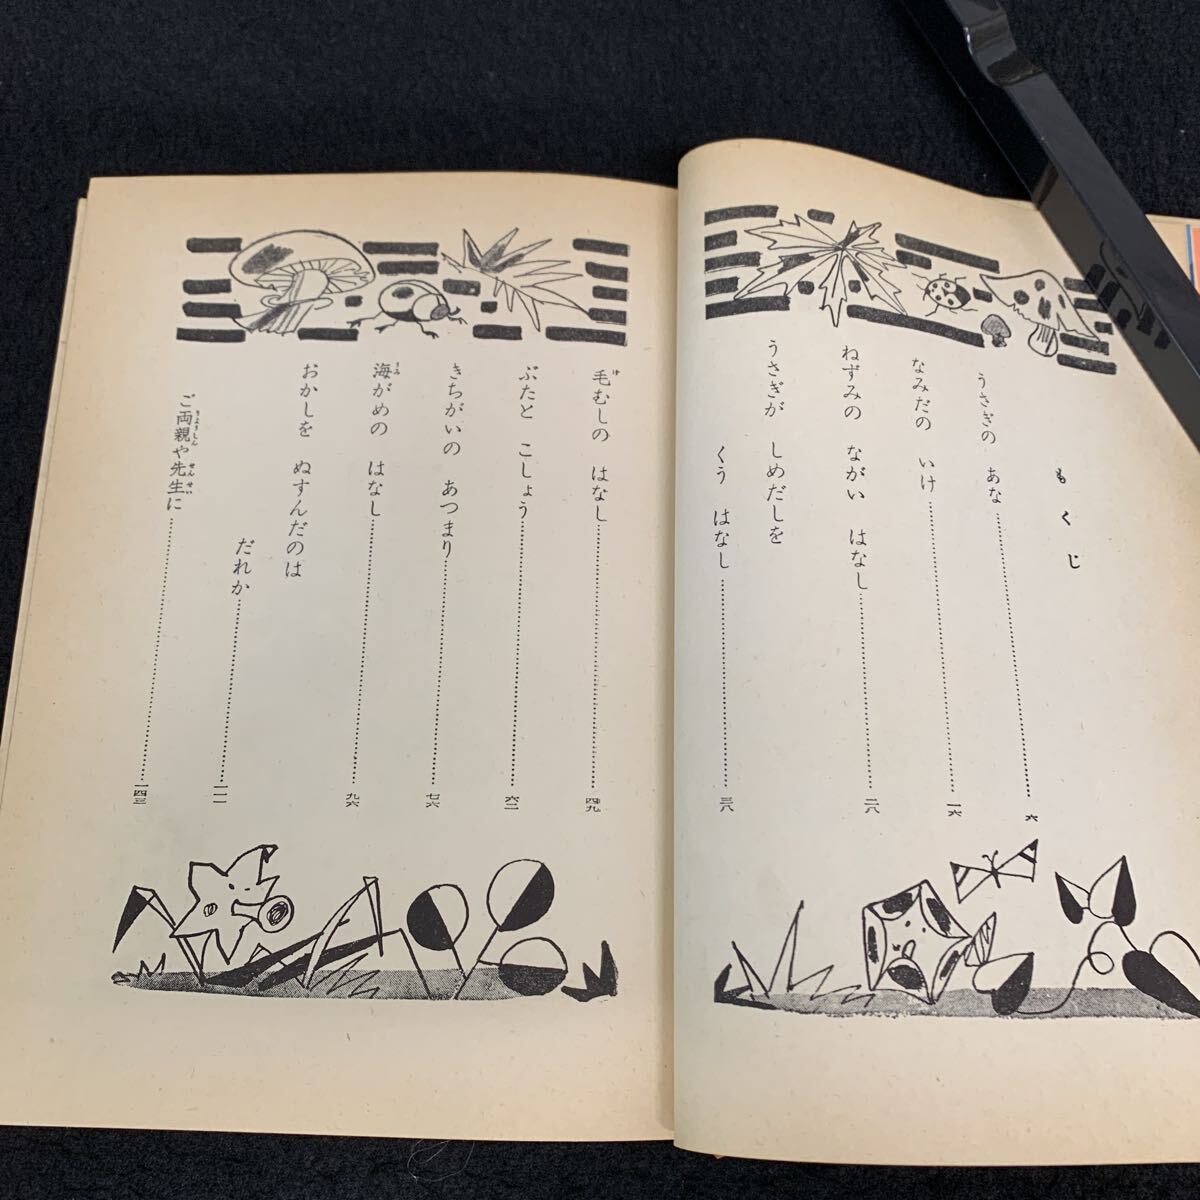 もくじ
うさぎの あな……六
なみだの いけ……一六
ねずみの ながい はなし……二八
うさぎが しめだしを
くう はなし……三八
毛むしの はなし……四九
ぶたと こしょう……六二
きちがいの あつまり……七六
海がめの はなし……九六
おかしを ぬすんだのは
だれか……一一一
ご両親や先生に……一四三